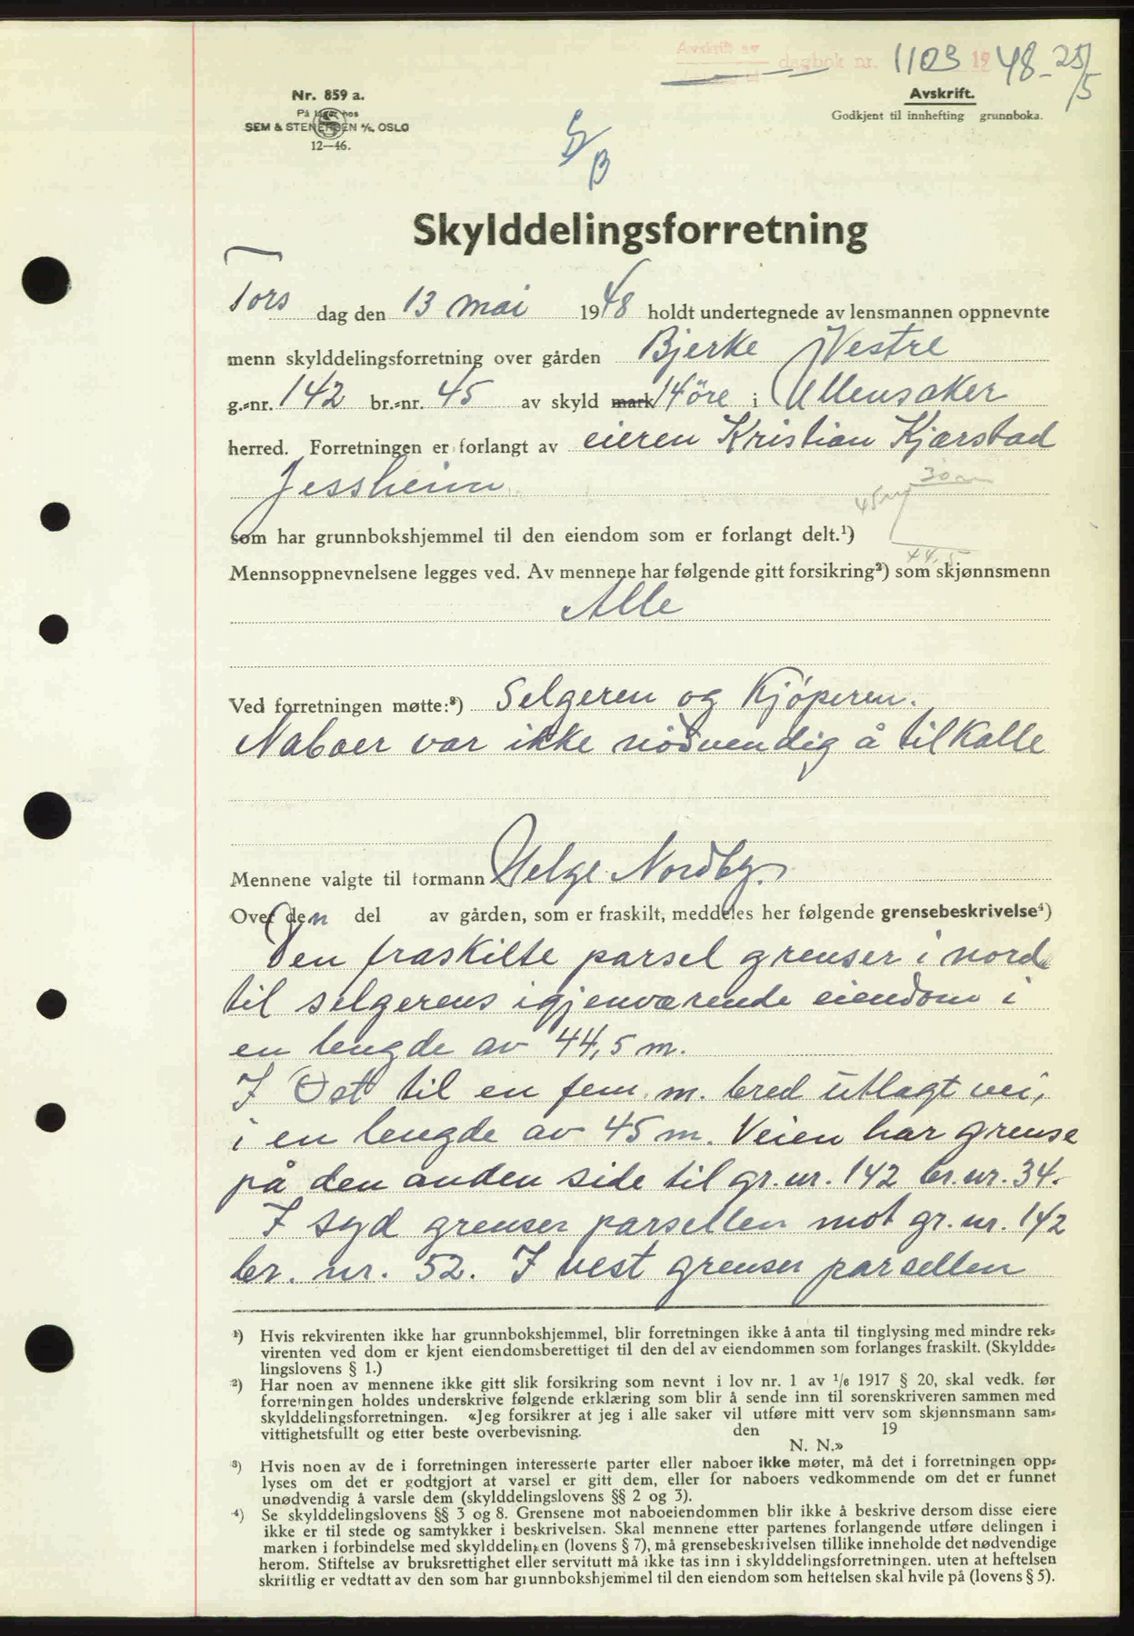 Avskrift av
dagbok nr. 1103 1948 - 25/5
Nr. 859 a.
På lager hos
SEM & STENERSEN A/S, OSLO
12—46.
Avskrift.
Godkjent til innhefting grunnboka.
Skylddelingsforretning
Tors dag den 13 mai 1948 holdt undertegnede av lensmannen oppnevnte
menn skylddelingsforretning over gården Bjerke Vestre
g.-nr. 142 br.-nr. 45 av skyld mark 14 öre i Ullensaker
herred. Forretningen er forlangt av eieren Kristian Kjærstad
Jessheim
30 m
45 m
som har grunnbokshjemmel til den eiendom som er forlangt delt.¹)
44,5
Mennsoppnevnelsene legges ved. Av mennene har følgende gitt forsikring²) som skjønnsmenn
Alle
Ved forretningen møtte:³) Selgeren og Kjöperen.
Naboer var ikke nödvendig å tilkalle
Mennene valgte til formann Helge Nordby.
Over den del av gården, som er fraskilt, meddeles her følgende grensebeskrivelse⁴)
Den fraskilte parsel grenser i nord
til selgerens igjenværende eiendom i
en lengde av 44,5 m.
I Öst til en fem m. bred utlagt vei,
i en lengde av 45 m. Veien har grense
på den anden side til gr. nr. 142 br. nr. 34.
I syd grenser parsellen mot gr. nr. 142
br. nr. 52. I vest grenser parsellen
¹) Hvis rekvirenten ikke har grunnbokshjemmel, blir forretningen ikke å anta til tinglysing med mindre rek-
virenten ved dom er kjent eiendomsberettiget til den del av eiendommen som forlanges fraskilt. (Skyldde-
lingslovens § 1.)
²) Har noen av mennene ikke gitt slik forsikring som nevnt i lov nr. 1 av 1/6 1917 § 20, skal vedk. før
forretningen holdes underskrive følgende erklæring som blir å sende inn til sorenskriveren sammen med
skylddelingsforretningen. «Jeg forsikrer at jeg i alle saker vil utføre mitt verv som skjønnsmann sam-
vittighetsfullt og etter beste overbevisning. den 19
N. N.»
³) Hvis noen av de i forretningen interesserte parter eller naboer ikke møter, må det i forretningen opp-
lyses om det er godtgjort at varsel er gitt dem, eller for naboers vedkommende om det er funnet
unødvendig å varsle dem (skylddelingslovens §§ 2 og 3).
⁴) Se skylddelingslovens §§ 3 og 8. Grensene mot naboeiendommen blir ikke å beskrive dersom disse eiere
ikke er til stede og samtykker i beskrivelsen. Skal mennene etter partenes forlangende utføre delingen i
marken i forbindelse med skylddelingen (lovens § 7), må grensebeskrivelsen tillike inneholde det nødvendige
herom. Stiftelse av bruksrettighet eller servitutt må ikke tas inn i skylddelingsforretningen. uten at heftelsen
skriftlig er vedtatt av den som har grunnbokshjemmel til den eiendom som heftelsen skal hvile på (lovens § 5).